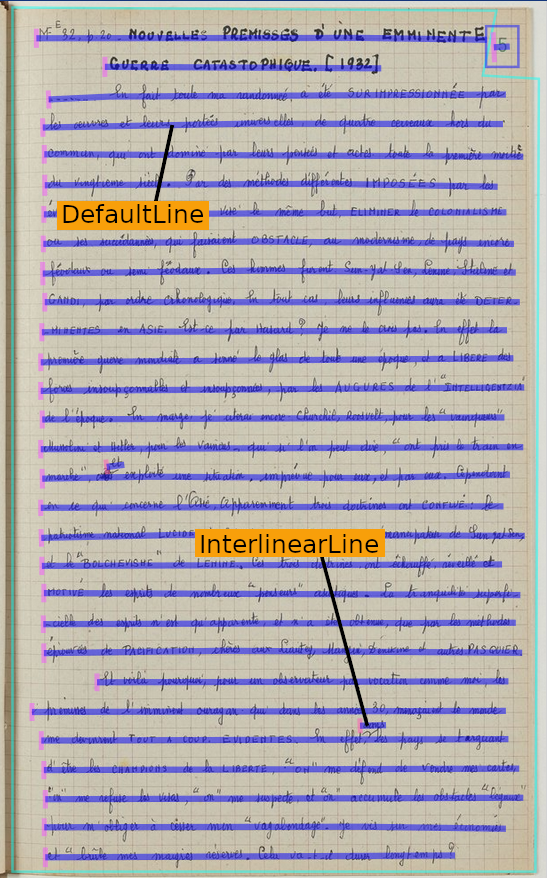 Mf E 32, p. 20. NOUVELLES PREMISSES D'UNE EMMINENTE
5
GUERRE CATASTOPHIQUE. [1932]
........ En fait toute ma randonnée, a été SURIMPRESSIONNÉE par
les œuvres et leurs portées universelles, de quatre cerveaux hors du
commun, qui ont dominé par leurs pensées et actes toute la première moitié
du vingtième siècle. Par des méthodes différentes IMPOSÉES par les
DefaultLine
visé le même but, ELIMINER le COLONIALISME
ou ses succédannés, qui faisaient OBSTACLE, au modernisme de pays encore
féodaux ou semi féodaux. Ces hommes furent Sun-Yat Sen, Lénine Staline et
GANDI, par ordre chronologique. En tout cas leurs influences aura été DETER-
MINENTES en ASIE. Est-ce par Hasard ? Je ne le crois pas. En effet la
première guerre mondiale a sonné le glas de toute une époque, et a LIBERE des
forces insoupçonnables et insoupçonnées, par les AUGURES de l'"INTELLIGENTZIA"
de l'époque. En marge, je citerai encore Churchil, Roosvelt, pour les "vainqueurs"
Mussolini et Hitler, pour les vaincus, qui si l'on peut dire, "ont pris le train en
et
marche", exploité une situation, imprévue pour eux, et par eux. Cependant
en ce qui concerne l'Asie apparemment trois doctrines ont CONFLUÉ : Le
patriotisme national LUCIDE émanciper de Sun Yat Sen,
InterlinearLine
et le "BOLCHEVISME" de LENINE. Ces trois doctrines ont échauffé, réveillé et
MOTIVÉ les esprits de nombreux "penseurs" asiatiques. La tranquilité superfi-
cielle des esprits n'est qu'apparente et n'a été obtenue, que par les méthodes
éprouvées de PACIFICATION, chères aux Liautey, et autres PASQUIER.
Et voilà pourquoi, pour un observateur par vocation comme moi, les
prémices de l'imminent ouragan qui dans les années 30, menaçaient le monde
me devinrent TOUT A COUP EVIDENTES. En effet, des pays se targuant
d'être les CHAMPIONS de la LIBERTE, "on" me défend de vendre mes cartes,
"on" me refuse les visas, "on" me suspecte, et "on" accumule les obstacles "légaux"
pour m'obliger à cesser mon "vagabondage". Je vis sur mes économies
et "brûle mes maigres réserves. Cela va-t-il durer longtemps ?